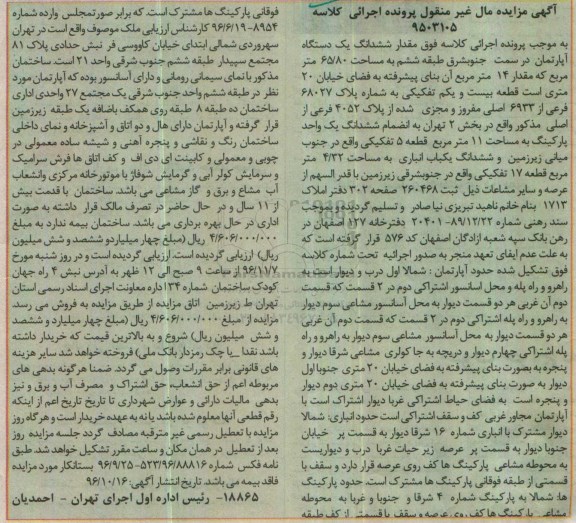 آگهی مزایده مال غیر منقول پرونده اجرائی کلاسه
۹۵۰۳۱۰۵
به موجب پرونده اجرائی کلاسه فوق مقدار ششدانگ یک دستگاه
آپارتمان در سمت جنوبشرق طبقه ششم به مساحت ۶۵/۸۰ متر
مربع که مقدار ۱۴ متر مربع آن بنای پیشرفته به فضای خیابان ۲۰
متری است قطعه بیست و یکم تفکیکی به شماره پلاک ۶۸۰۲۷
فرعی از ۶۹۳۳ اصلی مفروز و مجزی شده از پلاک ۴۰۵۲ فرعی از
اصلی مذکور واقع در بخش ۲ تهران به انضمام ششدانگ یک واحد
پارکینگ به مساحت ۱۱ متر مربع قطعه ۵ تفکیکی واقع در جنوب
میانی زیرزمین و ششدانگ یکباب انباری به مساحت ۴/۳۲ متر
مربع قطعه ۱۷ تفکیکی واقع در جنوبشرقی زیرزمین با قدر السهم از
عرصه و سایر مشاعات ذیل ثبت ۲۶۰۴۶۸ صفحه ۳۰۲ دفتر املاک
۱۷۱۳ بنام خانم ناهید تبریزی نیا صادر و تسلیم گردیده و بموجب
سند رهنی شماره ۸۹/۱۲/۲۲-۲۰۴۰۱ دفترخانه ۱۲۷ اصفهان در
رهن بانک سپه شعبه ازادگان اصفهان کد ۵۷۶ قرار گرفته است که
به علت عدم ایفای تعهد منجر به صدور اجرائیه تحت شماره کلاسه
فوق تشکیل شده حدود آپارتمان : شمالا اول درب و دیوار است به
راهرو و راه پله و محل آسانسور اشتراکی دوم در ۲ قسمت که قسمت
دوم آن غربی هر دو قسمت دیوار به محل آسانسور مشاعی سوم دیوار
به راهرو و راه پله اشتراکی دوم در ۲ قسمت که قسمت دوم آن غربی
هر دو قسمت دیوار به محل آسانسور مشاعی سوم دیوار به راهرو و راه
پله اشتراکی چهارم دیوار و دریچه به جا کولری مشاعی شرقا دیوار و
پنجره به بصورت بنای پیشرفته به فضای خیابان ۲۰ متری جنوبا اول
دیوار به صورت بنای پیشرفته به فضای خیابان ۲۰ متری دوم دیوار
و پنجره است به فضای حیاط اشتراکی غربا دیوار اشتراک است با
آپارتمان مجاور غربی کف و سقف اشتراکی است حدود انباری: شمالا
دیوار مشترک با انباری شماره ۱۶ شرقا دیوار به قسمت پر خیابان
جنوبا دیوار به قسمت پر عرصه زیر حیات غربا درب و دیواریست
به محوطه مشاعی پارکینگ ها کف روی عرصه قرار دارد و سقف با
قسمتی از طبقه فوقانی پارکینگ ها مشترک است. حدود پارکینگ
ها: شمالا به پارکینگ شماره ۴ شرقا و جنوبا و غربا به محوطه
مشاعی پارکینگ ها کف روی عرصه و سقف با قسمتی از کف طبقه
فوقانی پارکینگ ها مشترک است. که برابر صورتمجلس وارده شماره
۸۹۵۴-۹۶/۶/۱۹ کارشناس ارزیابی ملک موصوف واقع است در تهران
سهروردی شمالی ابتدای خیابان کاووسی فر نبش حدادی پلاک ۸۱
مجتمع سپیدار طبقه ششم جنوب شرقی واحد ۲۱ است. ساختمان
مذکور با نمای سیمانی رومانی و دارای آسانسور بوده که آپارتمان مورد
نظر در طبقه ششم واحد جنوب شرقی یک مجتمع ۲۷ واحدی اداری
ساختمان ده طبقه ۸ طبقه روی همکف باضافه یک طبقه زیرزمین
قرار گرفته و آپارتمان دارای هال و دو اتاق و آشپزخانه و نمای داخلی
ساختمان رنگ و نقاشی و پنجره آهنی و شیشه ساده معمولی در
چوبی و معمولی و کابینت ای دی اف و کف اتاق ها فرش سرامیک
و سرمایش کولر آبی و گرمایش شوفاژ با موتورخانه مرکزی وانشعاب
آب مشاع و برق و گاز مشاعی می باشد. ساختمان با قدمت بیش
از ۱۱ سال و در حال حاضر در تصرف مالک قرار داشته به صورت
اداری در حال بهره برداری می باشد. ساختمان بیمه ندارد به مبلغ
۴/۶۰۶/۰۰۰/۰۰۰ ریال (مبلغ چهار میلیارد و ششصد و شش میلیون
ریال) ارزیابی گردیده است. ارزیابی گردیده است و در روز شنبه مورخ
۹۶/۱۱/۷ از ساعت ۹ صبح الی ۱۲ ظهر به آدرس نبش ۴ راه جهان
کودک ساختمان شماره ۱۳۴ اداره معاونت اجرای اسناد رسمی استان
تهران ط زیرزمین اتاق مزایده از طریق مزایده به فروش می رسد.
مزایده از مبلغ ۴/۶۰۶/۰۰۰/۰۰۰ ریال (مبلغ چهار میلیارد و ششصد
و شش میلیون ریال) شروع و به بالاترین قیمت که خریدار داشته
باشد نقدا _یا چک رمزدار بانک ملی) فروخته خواهد شد سایر هزینه
های قانونی برابر مقررات وصول می گردد. ضمنا هرگونه بدهی های
مربوطه اعم از حق انشعاب، حق اشتراک و مصرف آب و برق و نیز
بدهی مالیات دارائی و عوارض شهرداری تا تاریخ تاریخ اعم از اینکه
رقم قطعی آنها معلوم شده باشد یا نه به عهده خریدار است و هرگاه روز
مزایده با تعطیل رسمی غیر مترقبه مصادف گردد جلسه مزایده روز
بعد از تعطیل در همان مکان و ساعت مقرر تشکیل خواهد شد. طبق
نامه فکس شماره ۵۲۳/۹۶/۸۸۸۱۶-۹۶/۹/۲۵ بستانکار مورد مزایده
فاقد بیمه می باشد. تاریخ انتشار آگهی: ۹۶/۱۰/۱۶
۱۸۸۶۵- رئیس اداره اول اجرای تهران - احمدیان